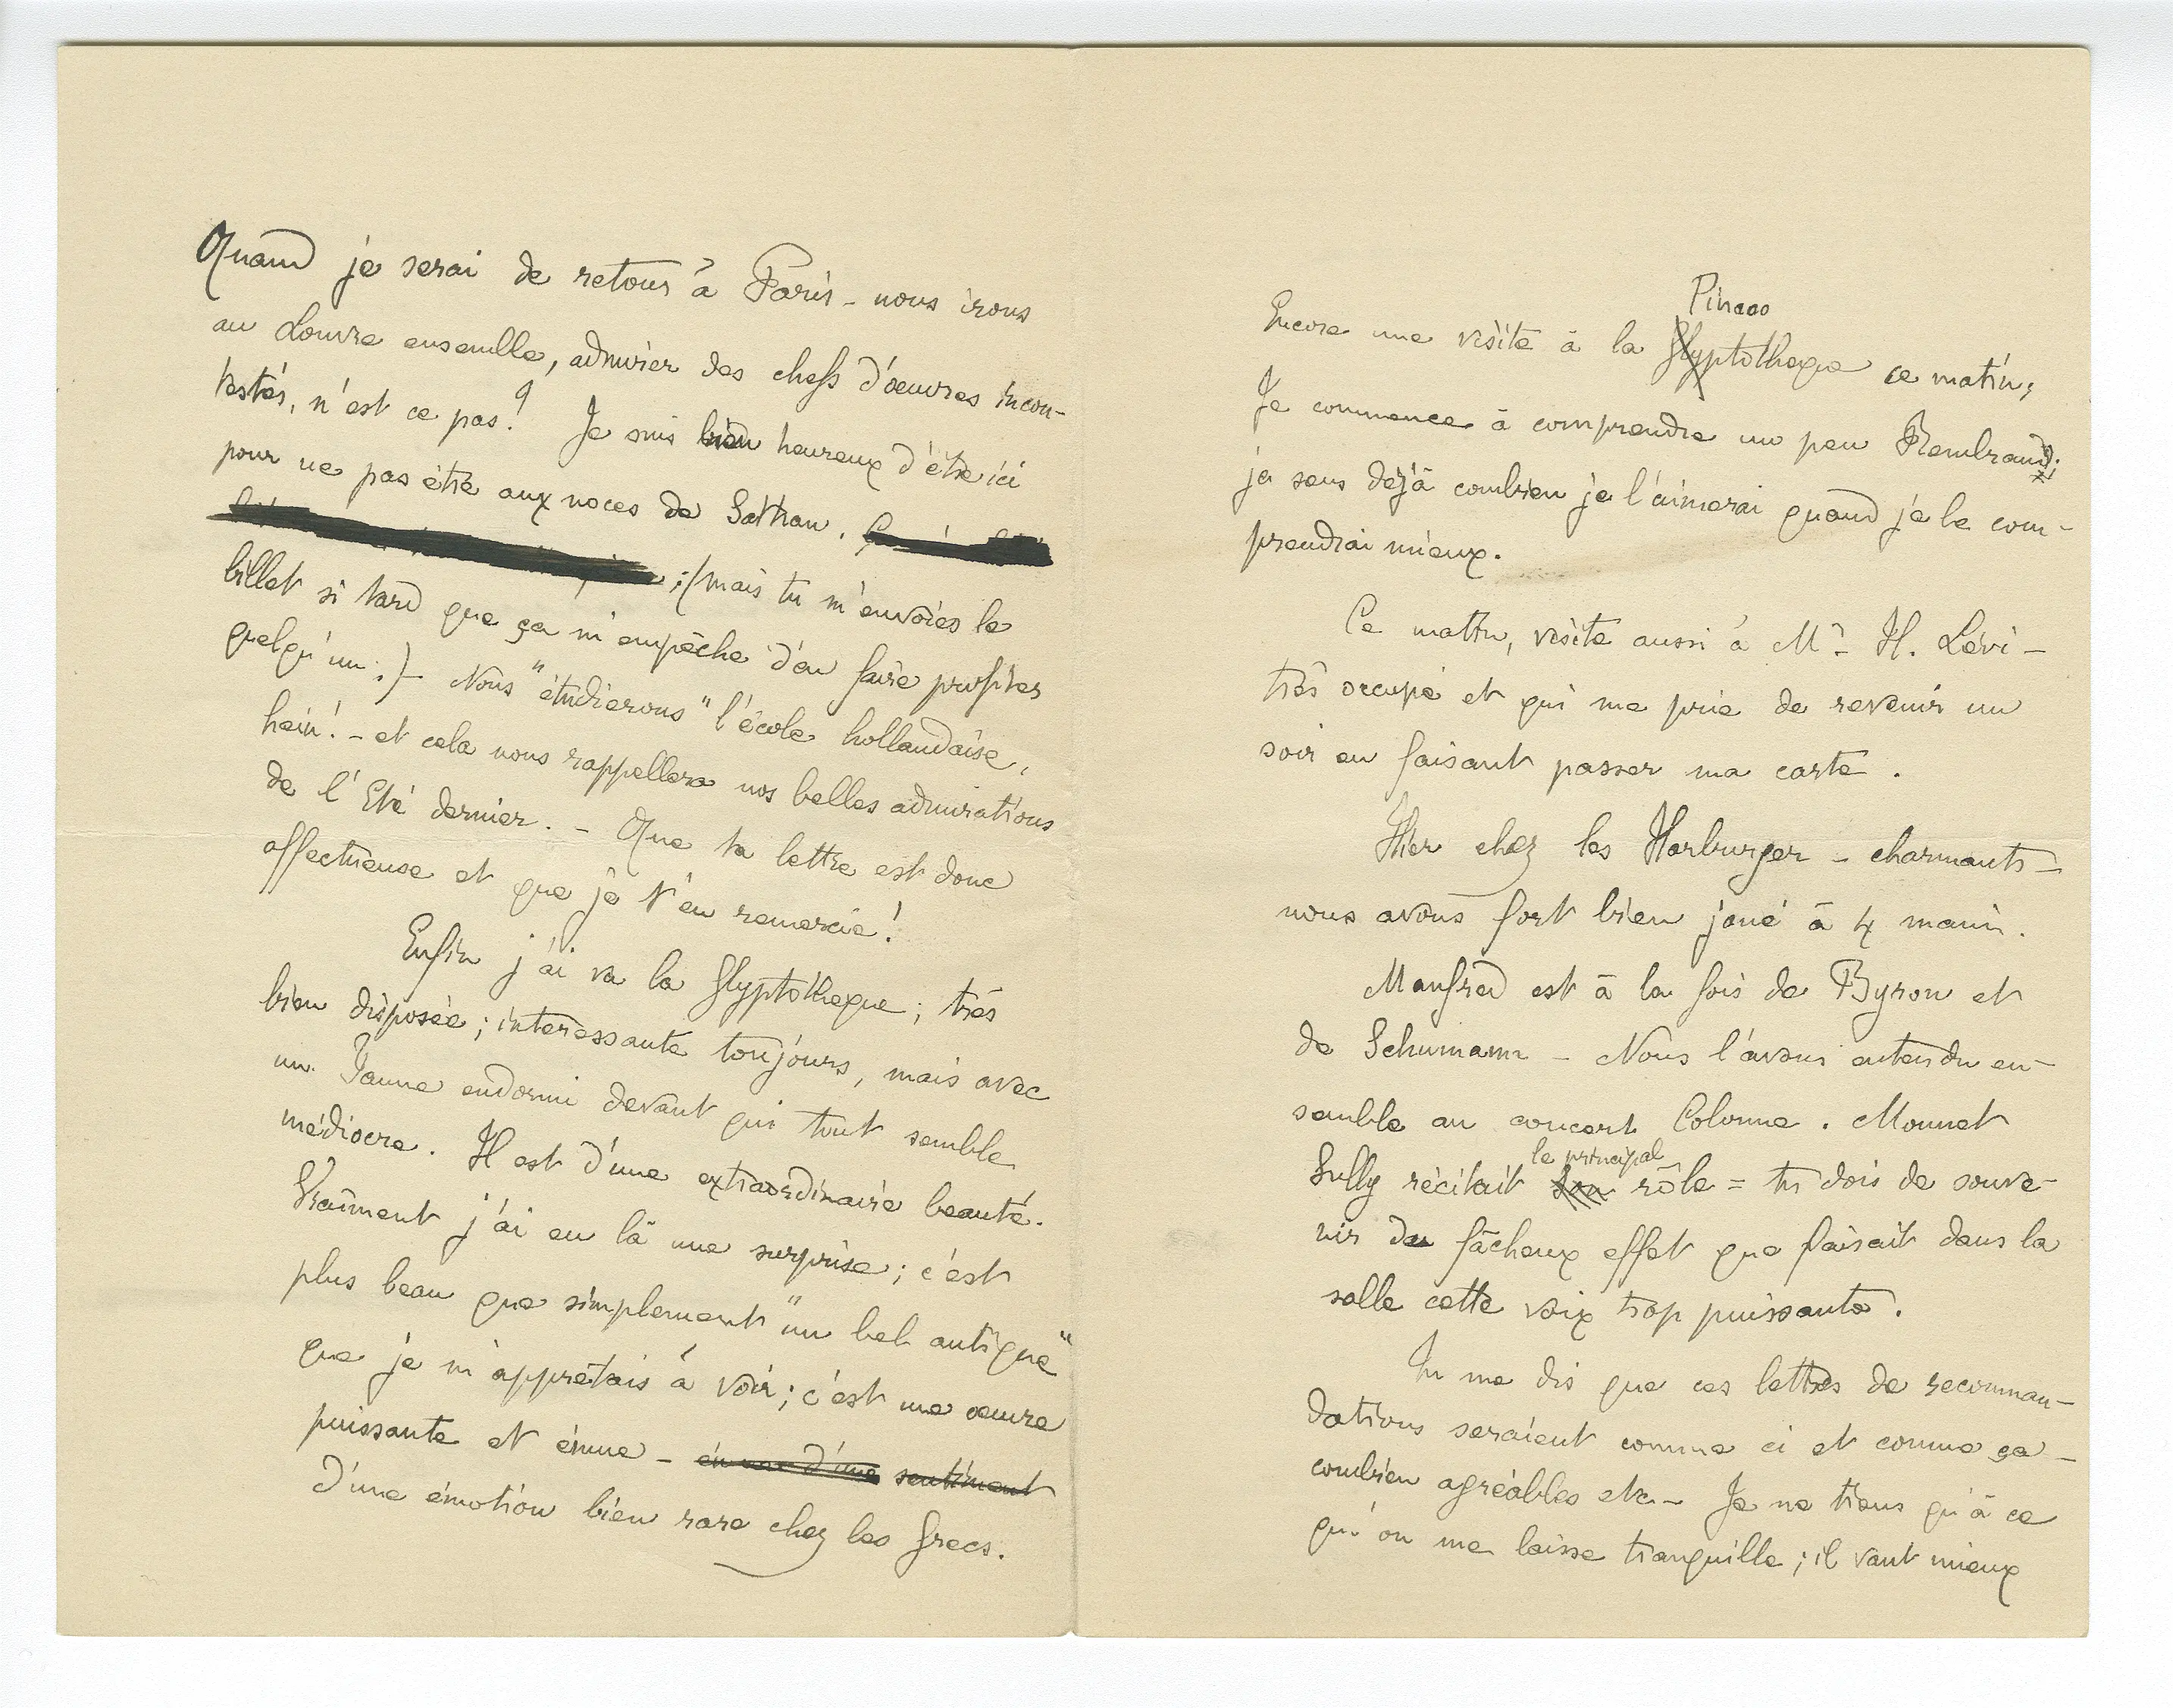 Quand je serai de retour à Paris - nous irons
au Louvre ensemble, admirer des chefs d'œuvres incon-
testés, n'est ce pas? Je suis bien heureux d'être ici
pour ne pas être aux noces de Sathan.
;(mais tu m'envoies le
billet si tard que ça m'empêche d'en faire profiter
quelqu'un.)- Nous "étudierons" l'école hollandaise,
hein! - et cela nous rappellera nos belles admirations
de l'Eté dernier. - Que ta lettre est donc
affectueuse et que je t'en remercie!
Enfin j'ai vu la Glyptotheque; très
bien disposée; interessante toujours, mais avec
un Faune endormi devant qui tout semble
médiocre. Il est d'une extraordinaire beauté.
Vraiment j'ai eu là une surprise; c'est
plus beau que simplement "un bel antique"
que je m'apprêtais à voir; c'est une œuvre
puissante et émue - sentiment
d'une émotion bien rare chez les Grecs.
Pinaco
Encore une visite à la Glyptotheque ce matin;
Je commence à comprendre un peu Rembrand;
je sens déjà combien je l'aimerai quand je le com-
prendrai mieux.
Ce matin, visite aussi à Mr H. Lévi -
très occupé et qui me prie de revenir un
soir en faisant passer ma carte.
Hier chez les Harburger - charmants -
nous avons fort bien joué à 4 mains.
Manfred est à la fois de Byron et
de Schumann - Nous l'avons entendu en-
semble au concert Colonne. Mounet
le principal
Sully récitait son rôle = tu dois de souve-
nir du fâcheux effet que faisait dans la
salle cette voix trop puissante.
Tu me dis que ces lettres de recomman-
dations seraient comme ci et comme ça -
combien agréables etc - Je ne tiens qu'à ce
qu'on me laisse tranquille; il vaut mieux